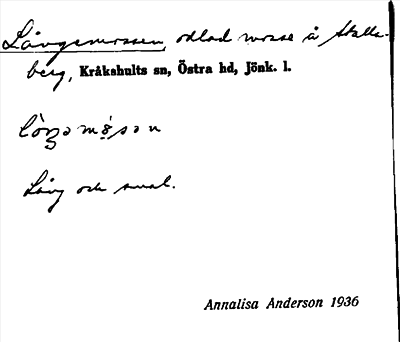 Långemossen, odlad mosse å Skälls-
berg, Kråkshults sn, Östra hd, Jönk. l.
Lång och smal.
Annalisa Anderson 1936